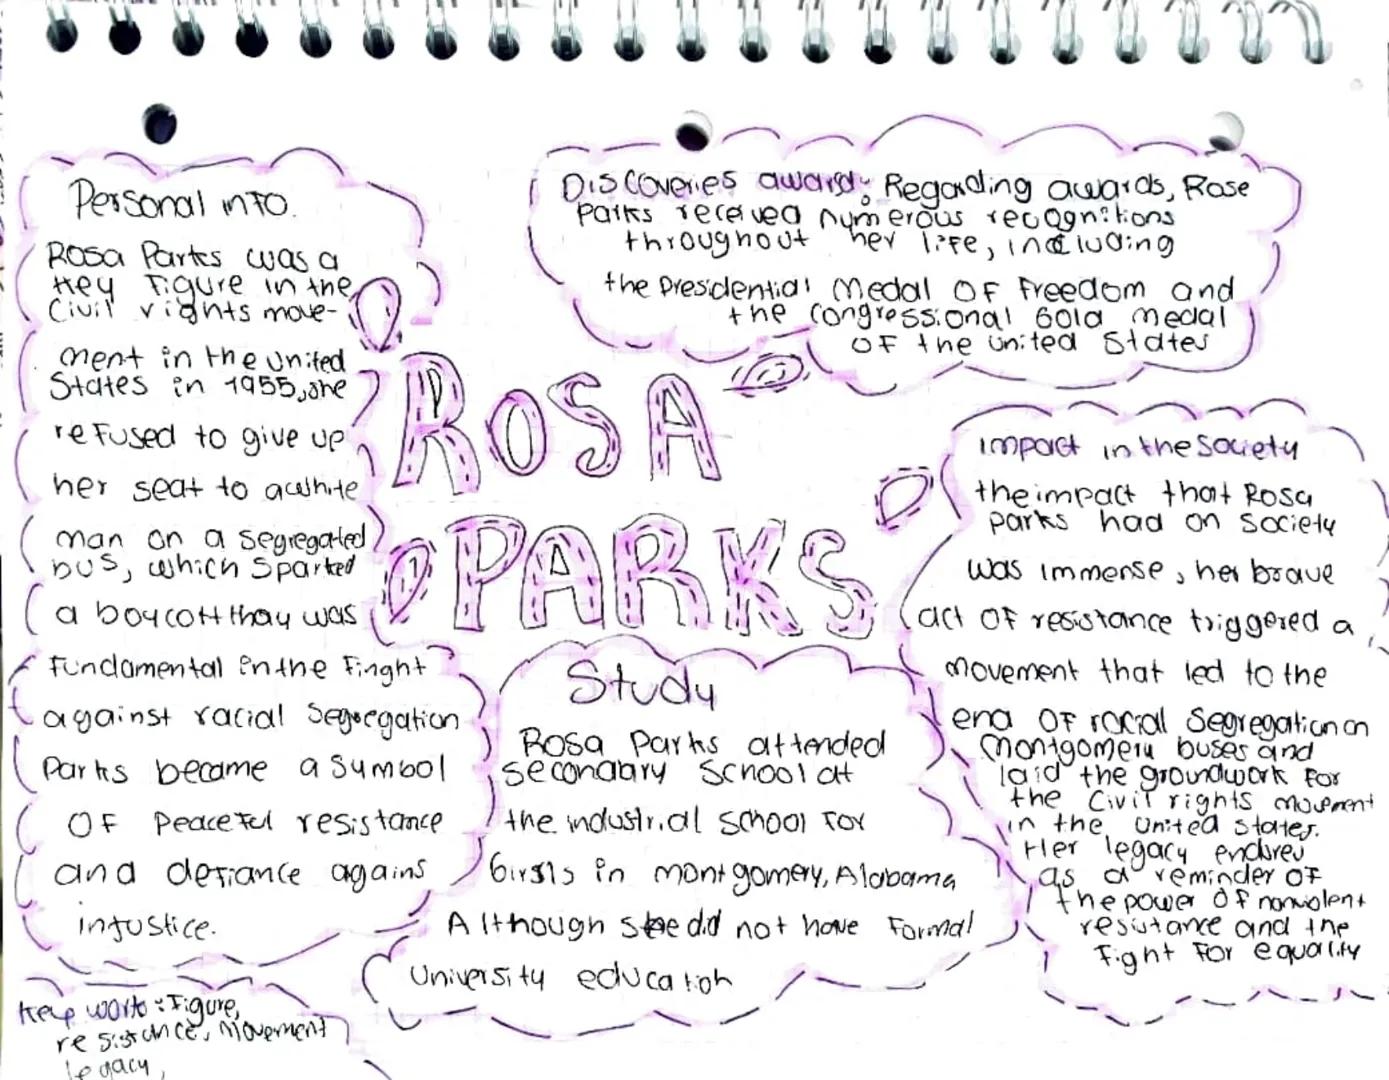 Personal info.
Rosa Parks was a
key figure in the
Civil rights move-
ment in the United
States in 1955, she
refused to give up
her seat to a white
man on a segregated
bus, which sparked
a boycott thay was
fundamental in the finght
against racial segregation
Parks became a symbol
of peaceful resistance
and defiance agains
injustice.
Discoveries award: Regarding awards, Rose
Parks received numerous recognitions
throughout her life, including
the Presidential Medal of Freedom and
the Congressional Gold medal
of the United States
ROSA
PARKS
Impact in the Society
the impact that Rosa
Parks had on society
was immense, her brave
act of resistance triggered a
movement that led to the
end of racial segregation on
Montgomery buses and
laid the groundwork for
the Civil rights movement
in the United States.
Her legacy endures
as a reminder of
the power of nonviolent
resistance and the
fight for equality
Study
Rosa Parks attended
secondary school at
the industrial school for
Girsls in Montgomery, Alabama
Although she did not have formal
University education
Figure,
resistance, movement
legacy,